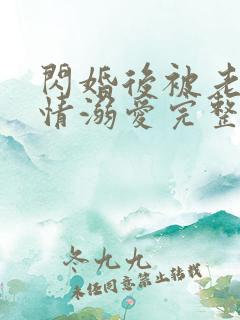 閃婚後被老
情溺愛完整
冬九九
未经同意禁止转载